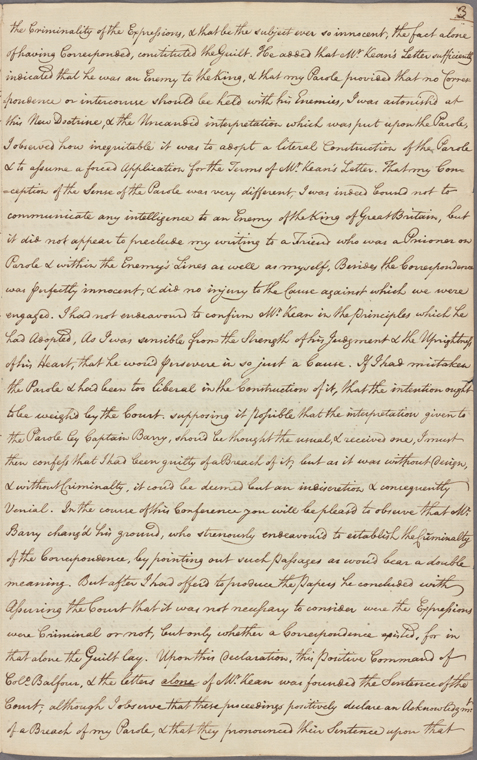 3
the Criminality of the Expressions, & that be the subject ever so innocent, the fact alone
of having Corresponded, constituted the Guilt. He added that Mr. Kean's Letter sufficiently
indicated that he was an Enemy to the King, & that my Parole provided that no Corres-
pondence or intercourse should be held with his Enemies, I was astonished at
this New Doctrine, & the Uncandid interpretation which was put upon the Parole,
I observed how inequitable it was to adopt a literal Construction of the Parole
& to assume a forced Application for the Terms of Mr. Kean's Letter. That my Con-
-ception of the Sense of the Parole was very different, I was indeed bound not to
communicate any intelligence to an Enemy of the King of Great Britain, but
it did not appear to preclude my writing to a Friend who was a Prisoner on
Parole & within the Enemy's Lines as well as myself, Besides the Correspondence
was perfectly innocent, & did no injury to the Cause against which we were
engaged. I had not endeavoured to confirm Mr. Kean in the principles which he
had Adopted, As I was sensible from the Strength of his Judgment & the Uprightness
of his Heart, that he would persevere in so just a Cause. If I had mistaken
the Parole & had been too liberal in the Construction of it, that the intention ought
to be weighed by the Court. supposing it possible that the interpretation given to
the Parole by Captain Barry, should be thought the usual, & received one, I must
then confess that I had been guilty of a Breach of it, but as it was without Design,
& without Criminality, it could be deemed but an indiscretion & consequently
Venial. In the course of this Conference you will be pleased to observe that Mr.
Barry chang'd his ground, who strenously endeavoured to establish the Criminality
of the Correspondence, by pointing out such passages as would bear a double
meaning. But after I had offerd to produce the Papers he concluded with
Assuring the Court that it was not necessary to consider were the Expressions
were Criminal or not, but only whether a Correspondence existed, for in
that alone the Guilt lay. Upon this Declaration, this positive Command of
Coll. Balfour, & the letters alone of Mr. Kean was founded the Sentence of the
Court; although I observe that these proceedings positively declare an Acknowledgmt.
of a Breach of my Parole, & that they pronounced their Sentence upon that